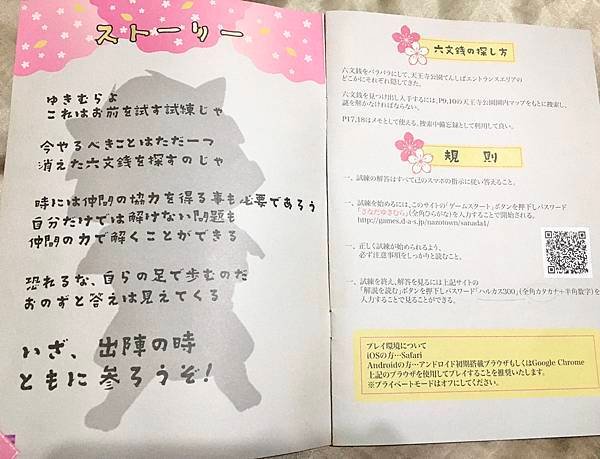 ストーリー
ゆきむらよ
これはお前を試す試練じゃ
今やるべきことはただ一つ
消えた六文銭を探すのじゃ
時には仲間の協力を得る事も必要であろう
自分だけでは解けない問題も
仲間の力で解くことができる
恐れるな、自らの足で歩むのだ
おのずと答えは見えてくる
いざ、出陣の時
ともに参ろうぞ!
六文銭の探し方
六文銭をバラバラにして、天王寺公園てんしばエントランスエリアの
どこかにそれぞれ隠してきた。
六文銭を見つけ出し入手するには、P9,10の天王寺公園園内マップをもとに捜索し、
謎を解かなければならない。
P17,18はメモとして使える。捜索中備忘録として利用して良い。
規 則
一、試練の解答はすべて己のスマホの指示に従い答えること。
一、試練を始めるには、このサイトの「ゲームスタート」ボタンを押下しパスワード
「さなだゆきむら」(全角ひらがな)を入力することで開始される。
http://games.d-a-s.jp/nazotown/sanada1/
一、正しく試練が始められるよう、
必ず注意事項をしっかりと読むこと。
一、試練を終え、解答を見るには上記サイトの
「解説を読む」ボタンを押下しパスワード「ハルカス300」(全角カタカナ+半角数字)を
入力することで見ることができる。
プレイ環境について
iOSの方…Safari
Androidの方…アンドロイド初期搭載ブラウザもしくはGoogle Chrome
上記のブラウザを使用してプレイすることを推奨いたします。
※プライベートモードはオフにしてください。